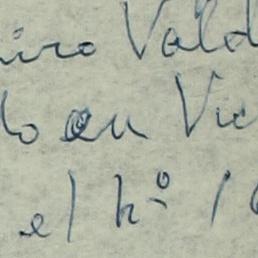 iro Vald
do en Vic
el nº 16